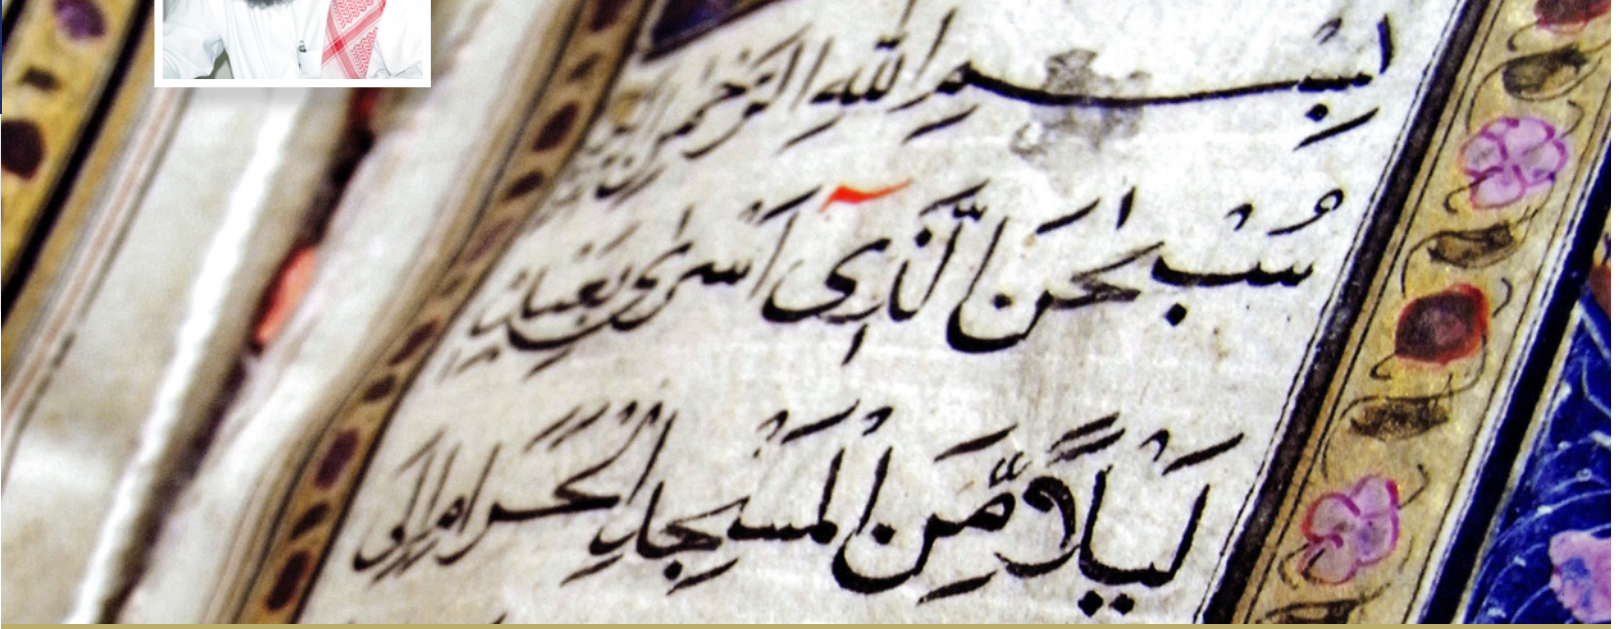 بِسْمِ اللهِ الرَّحْمٰنِ
سُبْحٰنَ الَّذِيٓ اَسْرٰى بِعَبْدِهٖ
لَيْلًا مِّنَ الْمَسْجِدِ الْحَرَامِ اِلَى